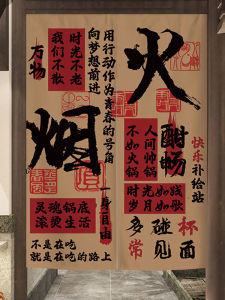 火
烟
用行动作为青春的号角
向梦想前进
时光不老
我们不散
万物
酣畅
人间帅锅
不如火锅
快乐补给站
一身自由
灵魂锅底
滚烫生活
时光如歌
岁月
多碰杯
常见面
不是在吃
就是在吃的路上